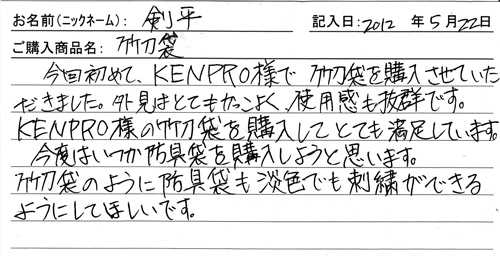 お名前(ニックネーム): 剣平 記入日: 2012 年 5 月 22 日
ご購入商品名: 竹刀袋
今回初めて、KENPRO様で竹刀袋を購入させていた
だきました。外見はとてもかっこよく、使用感も抜群です。
KENPRO様の竹刀袋を購入してとても満足しています。
今度はいつか防具袋を購入しようと思います。
竹刀袋のように防具袋も淡色でも刺繍ができる
ようにしてほしいです。